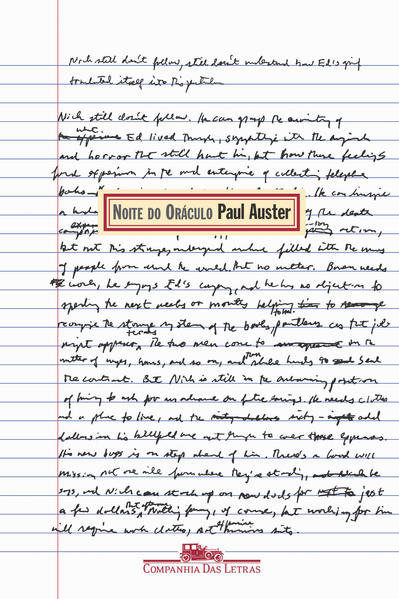 Nick still don't follow, still don't understand how Ed's grief
translated itself into this particular
Nick still don't follow. He can grasp the enormity of
what Ed lived through, sympathize with the anguish
and horror that still haunt him, but how those feelings
found expression in the mad enterprise of collecting telephone
books
NOITE DO ORÁCULO Paul Auster
of the death
but not this strange, underground archive filled with the names
of people from around the world. But no matter. Bowen needs
work, he enjoys Ed's company, and he has no objection to
spending the next weeks or months helping him to
reorganize the storage system of the books, pointless as that job
might appear. The two men come to terms on the
matter of wages, hours, and so on, and then shake hands to seal
the contract. But Nick is still in the embarrassing position
of having to ask for an advance on future earnings. He needs clothes
and a place to live, and the sixty-odd
dollars in his billfold are not enough to cover those expenses.
His new boss is one step ahead of him. There's a Good Will
mission not one mile from where they're standing, he
says, and Nick can stock up on new duds for just
a few dollars that afternoon. Nothing fancy, of course, but working for him
will require work clothes, not expensive business suits.
COMPANHIA DAS LETRAS